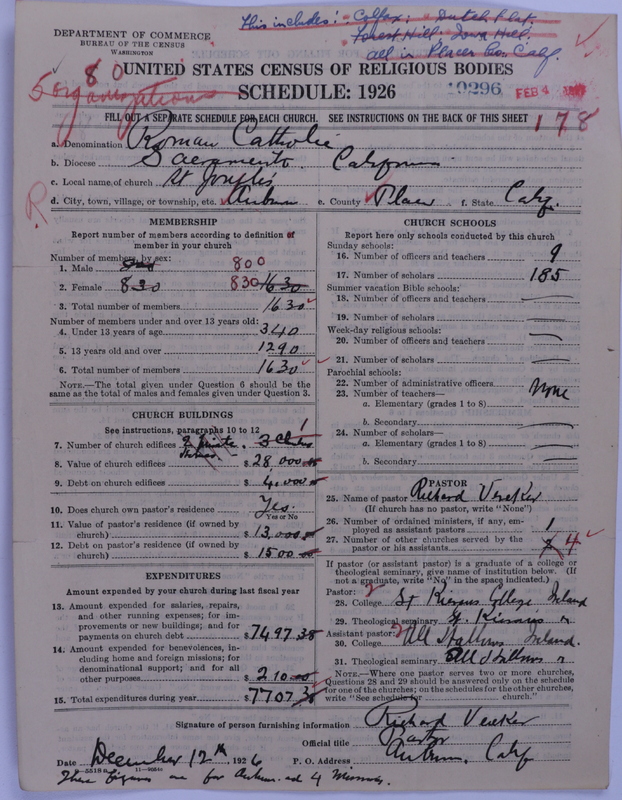 This includes:- Colfax: Dutch Flat.
Forest Hill. Iowa Hill.
all in Placer Co. Calif.
DEPARTMENT OF COMMERCE
BUREAU OF THE CENSUS
WASHINGTON
80
5 organizations
UNITED STATES CENSUS OF RELIGIOUS BODIES
SCHEDULE: 1926
10296
FEB 4
178
FILL OUT A SEPARATE SCHEDULE FOR EACH CHURCH. SEE INSTRUCTIONS ON THE BACK OF THIS SHEET
a. Denomination Roman Catholic
b. Diocese Sacramento California
c. Local name of church St Joseph's
d. City, town, village, or township, etc. Auburn e. County Placer f. State Calif.
R
MEMBERSHIP
Report number of members according to definition of member in your church
Number of members by sex:
1. Male 800 800
2. Female 830 830 1630
3. Total number of members 1630
Number of members under and over 13 years old:
4. Under 13 years of age 340
5. 13 years old and over 1290
6. Total number of members 1630
NOTE.—The total given under Question 6 should be the same as the total of males and females given under Question 3.
CHURCH BUILDINGS
See instructions, paragraphs 10 to 12
7. Number of church edifices 3
8. Value of church edifices $ 28,000
9. Debt on church edifices $ 4,000
10. Does church own pastor's residence Yes.
Yes or No
11. Value of pastor's residence (if owned by church) $ 13,000
12. Debt on pastor's residence (if owned by church) $ 1500
EXPENDITURES
Amount expended by your church during last fiscal year
13. Amount expended for salaries, repairs, and other running expenses; for improvements or new buildings; and for payments on church debt $ 7497.38
14. Amount expended for benevolences, including home and foreign missions; for denominational support; and for all other purposes $ 210.00
15. Total expenditures during year $ 7707.38
CHURCH SCHOOLS
Report here only schools conducted by this church
Sunday schools:
16. Number of officers and teachers 9
17. Number of scholars 185
Summer vacation Bible schools:
18. Number of officers and teachers
19. Number of scholars
Week-day religious schools:
20. Number of officers and teachers
21. Number of scholars
Parochial schools:
22. Number of administrative officers None
23. Number of teachers—
a. Elementary (grades 1 to 8)
b. Secondary
24. Number of scholars—
a. Elementary (grades 1 to 8)
b. Secondary
PASTOR
25. Name of pastor Richard Vereker
(If church has no pastor, write "None")
26. Number of ordained ministers, if any, employed as assistant pastors 1
27. Number of other churches served by the pastor or his assistants 4
If pastor (or assistant pastor) is a graduate of a college or theological seminary, give name of institution below. (If not a graduate, write "No" in the space indicated.)
Pastor: 2
28. College St Kierans College Ireland
29. Theological seminary St. Kierans "
Assistant pastor: 2
30. College All Hallows Ireland.
31. Theological seminary All Hallows "
NOTE.—Where one pastor serves two or more churches, Questions 28 and 29 should be answered only on the schedule for one of the churches; on the schedules for the other churches, write "See schedule for church."
Signature of person furnishing information Richard Vereker
Official title Pastor
Date December 12th, 1926 P. O. Address Auburn, Calif
These figures are for Auburn and 4 Missions.